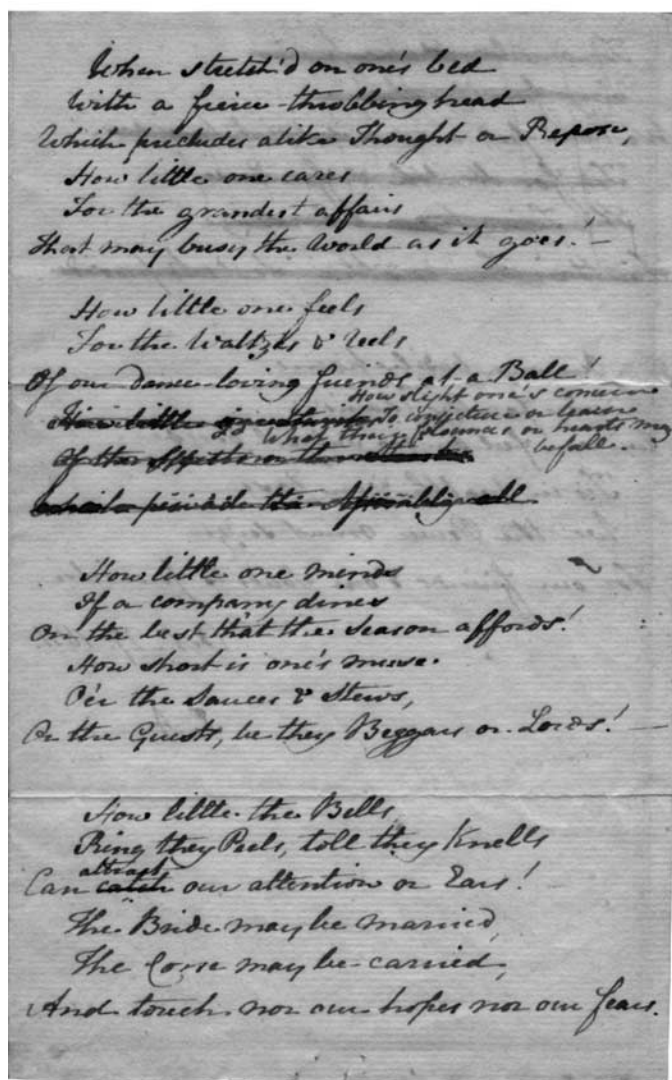 When stretch'd on one's bed
With a fierce throbbing head
Which precludes alike Thought or Repose,
How little one cares
For the grandest affairs
That may busy the World as it goes! —
How little one feels
For the Waltzes & reels
Of our dance-loving friends at a Ball!
How slight one's concern
To conjecture or learn
What their flounces or hearts may
befall.
How little one minds
If a company dines
On the best that the Season affords!
How short is one's muse
O'er the Sauces & Stews,
Or the Guests, be they Beggars or Lords! —
How little the Bells
Ring they Peels, toll they Knells
attract
Can catch our attention or Ears!
The Bride may be married,
The Corse may be carried,
And touch nor our hopes nor our fears.